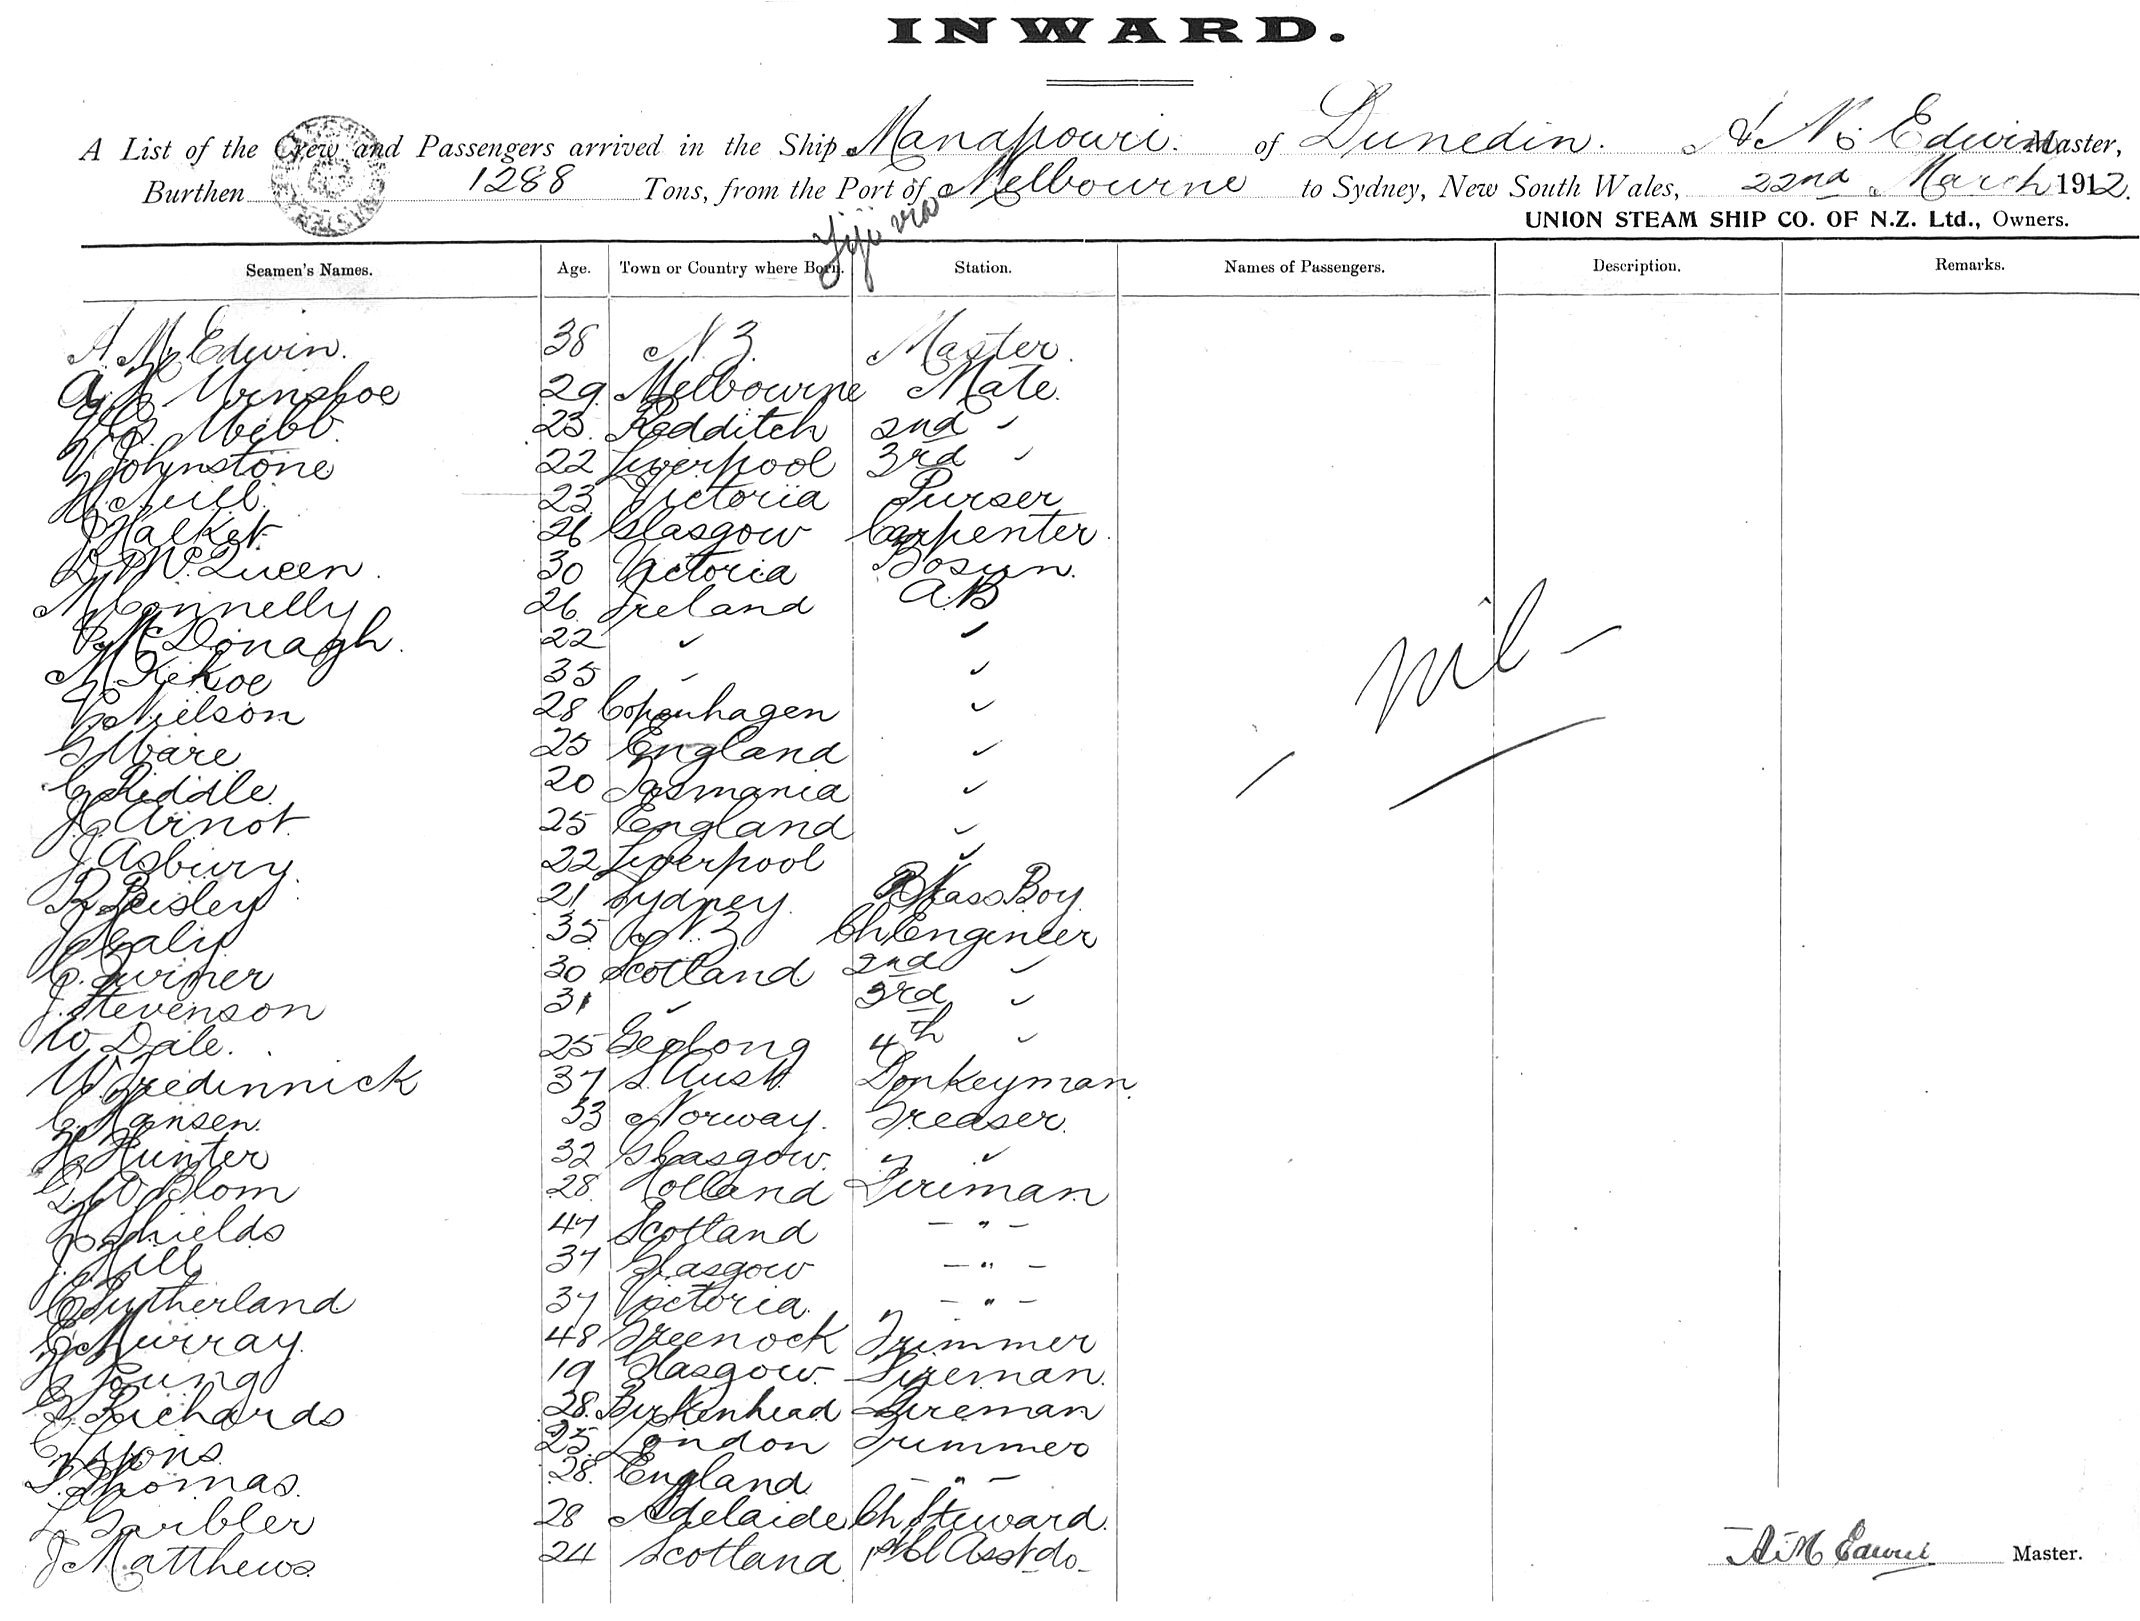 INWARD.
A List of the Crew and Passengers arrived in the Ship Manapouri. of Dunedin. Edwin Master,
Burthen 1288 Tons, from the Port of Melbourne to Sydney, New South Wales, 22nd March 1912.
Fiji via
UNION STEAM SHIP CO. OF N.Z. Ltd., Owners.
Seamen's Names. Age. Town or Country where Born. Station. Names of Passengers. Description. Remarks.
A. M. Edwin. 38 N Z. Master.
29. Melbourne Mate.
Webb. 23. Redditch 2nd "
Johnstone 22 Liverpool 3rd "
23 Victoria Purser
J Halket. 26 Glasgow Carpenter.
D McQueen. 30 Victoria Bosun.
M Connelly 26. Ireland A.B
P McDonagh. 22 " "
M Kehoe 35 " "
C Nielson 28 Copenhagen "
G Ware 25 England "
C Riddle. 20 Tasmania "
J. Arnot. 25 England "
J Asbury. 22 Liverpool "
R Peisley 21 Sydney. Boy.
35 N.Z Ch Engineer
C. Turner 30 Scotland 2nd "
J. Stevenson 31 " 3rd "
W. Dale. 25 Geelong 4th "
W Tredinnick 37 S. Aust. Donkeyman.
C. Hansen. 33 Norway. Greaser.
H Hunter 32 Glasgow. " "
G. W Blom 28. Holland Fireman.
Shields 47 Scotland — " —
J. Hill 37 Glasgow — " —
C Sutherland 37 Victoria. — " —
C Murray. 48 Greenock Trimmer
H Young 19 Glasgow. Fireman.
G. Richards 28. Birkenhead Fireman
C Lyons. 25. London Trimmer
Thomas. 28. England — " —
L Garbler 28 Adelaide Ch Steward.
J Matthews. 24 Scotland Asst do
— nil —
A. M Edwin Master.